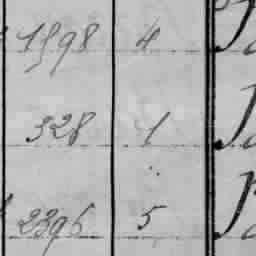 1598 4
328 1
2396 5